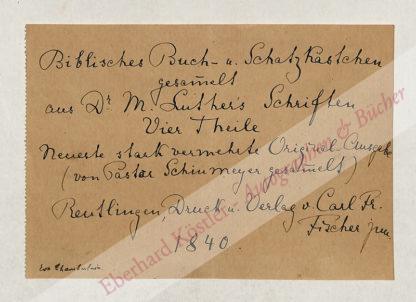 Biblisches Buch- u. Schatzkästchen
gesam̅elt
aus Dr. M. Luther's Schriften
Vier Theile
Neuerte stark vermehrte Original Ausgabe
(von Pastor Schinmeyer gesam̅elt).
Reutlingen, Druck u. Verlag v. Carl Fr.
Fischer jun.
1840.
Eva Chamberlain
Eberhard Köstler - Autographen & Bücher